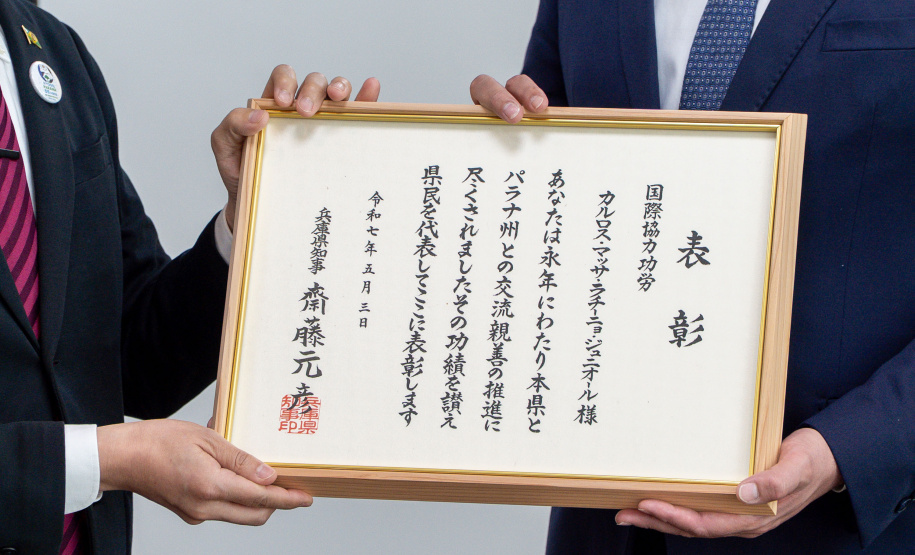 表彰
国際協力功労
カルロス・マッサ・ラチーニョ・ジュニオール様
あなたは永年にわたり本県と
パラナ州との交流親善の推進に
尽くされましたその功績を讃え
県民を代表してここに表彰します
令和七年五月三日
兵庫県知事 齋藤元彦
兵庫県
知事印